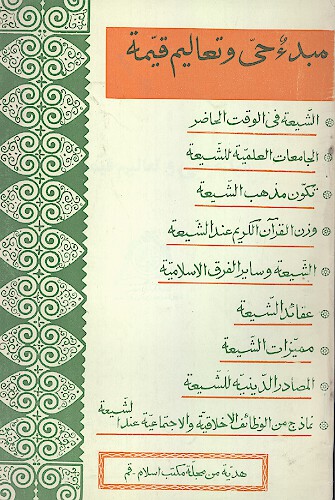 مبدءٌ حيّ وتعاليم قيّمة
الشّيعة في الوقت الحاضر
الجامعات العلميّة للشّيعة
تكوّن مذهب الشّيعة
وزن القرآن الكريم عند الشّيعة
الشّيعة وساير الفرق الاسلاميّة
عقائد الشّيعة
مميّزات الشّيعة
المصادر الدّينيّة للشّيعة
نماذج من الوظائف الاخلاقيّة والاجتماعيّة عند الشّيعة
هديّة من مجلة مكتب اسلام ـ قم